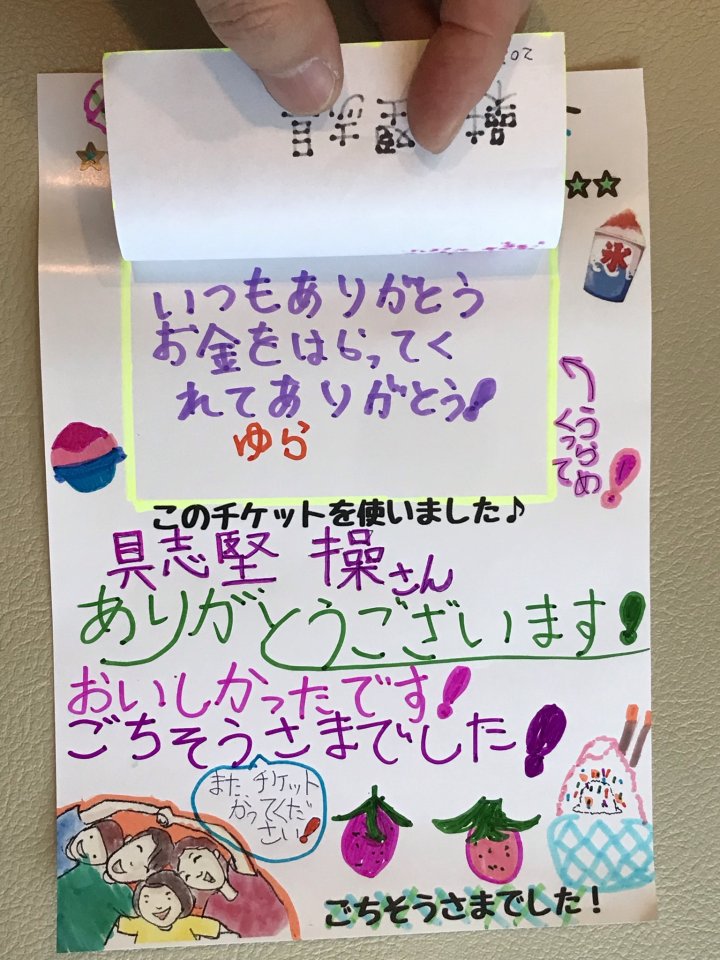 いつもありがとう
お金をはらってく
れてありがとう!
ゆら
うらめ
くって
氷
このチケットを使いました♪
具志堅 操さん
ありがとうございます!
おいしかったです!
ごちそうさまでした!
また、チケット
かってくだ
さい!
ごちそうさまでした!